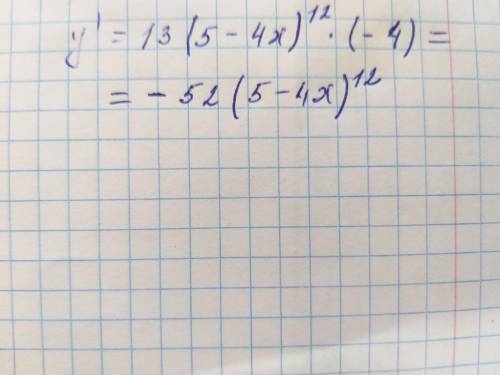 y' = 13 (5 - 4x)¹² · (- 4) =
= - 52 (5 - 4x)¹²